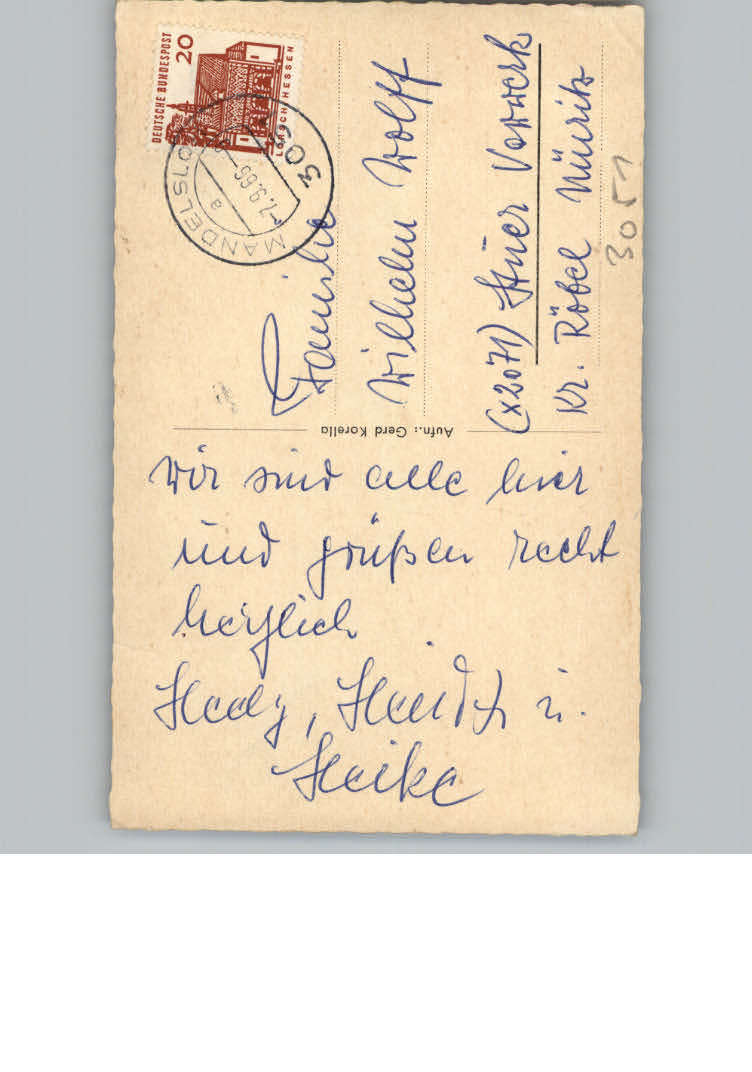 Wir sind alle hier
und grüßen recht
herzlich
Hedy, u.
Heike
Aufn.: Gerd Korella
DEUTSCHE BUNDESPOST
20
LORSCH HESSEN
MANDELSLO
a
-7.9.66
Familie
Wilhelm Wolff
(X2071) Stuer Vorwerk
Kr. Röbel Müritz
3051